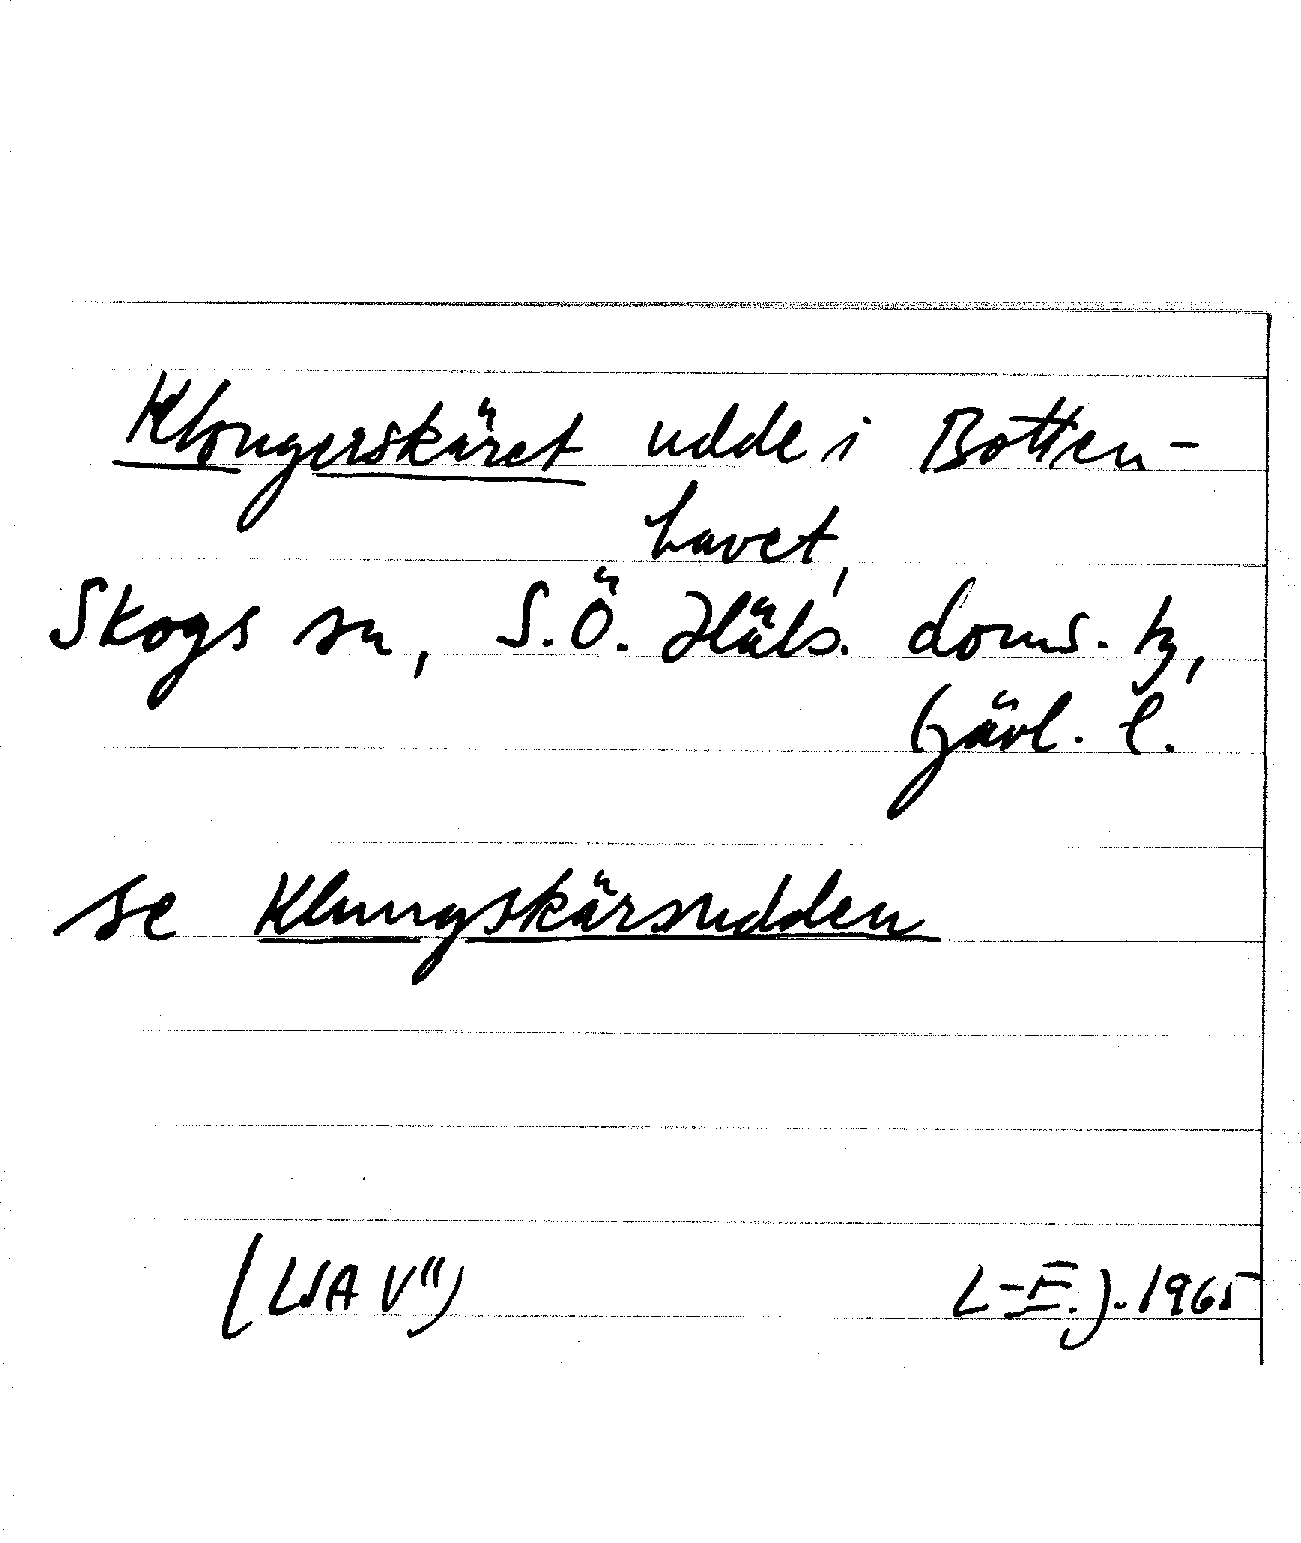 Klongerskäret udde i Botten-
havet,
Skogs sn, S.Ö. Häls. doms. tg,
Gävl. l.
se Klungskärsudden
(LSA V") L-E.J. 1965